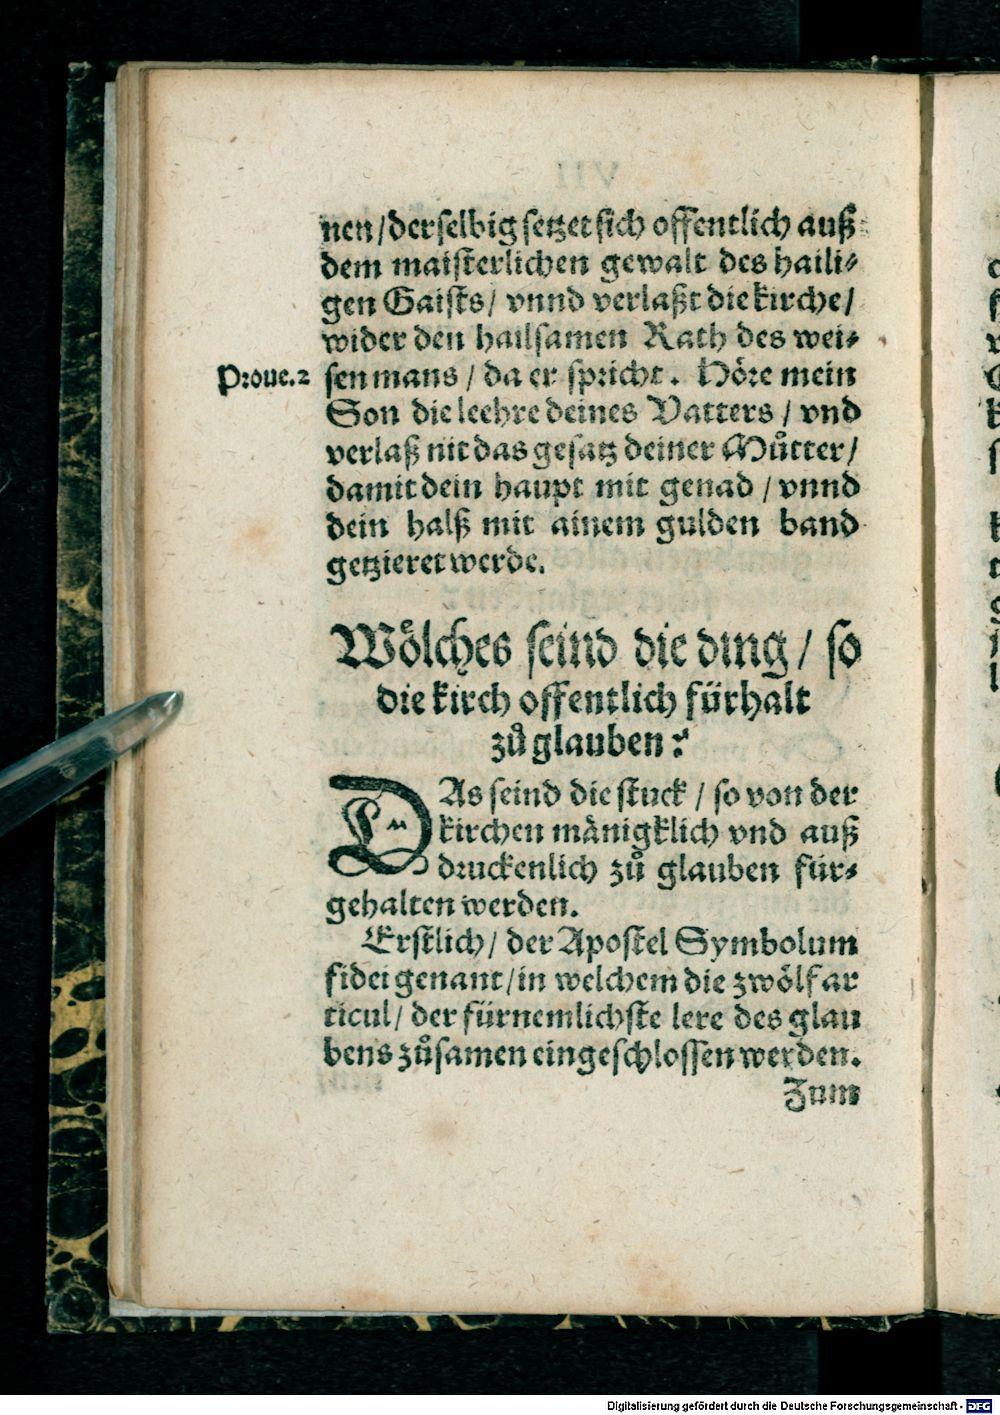 nen/derselbig setzet sich offentlich auß
dem maisterlichen gewalt des haili⸗
gen Gaists/ vnnd verlaßt die kirche/
wider den hailsamen Rath des wei⸗
Proue.2 sen mans / da er spricht. Höre mein
Son die leehre deines Vatters / vnd
verlaß nit das gesatz deiner Můtter/
damit dein haupt mit genad / vnnd
dein halß mit ainem gulden band
getzieret werde.
Wölches seind die ding / so
die kirch offentlich fürhalt
zů glauben?
DAs seind die stuck / so von der
kirchen mänigklich vnd auß
druckenlich zů glauben für⸗
gehalten werden.
Erstlich/ der Apostel Symbolum
fidei genant/in welchem die zwölf ar
ticul/ der fürnemlichste lere des glau
bens zůsamen eingeschlossen werden.
Zum
Digitalisierung gefördert durch die Deutsche Forschungsgemeinschaft - DFG